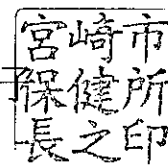 宮崎市
保健所
長之印